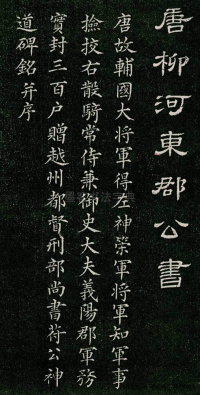 唐柳河東郡公書
唐故輔國大將軍得左神策軍將軍知軍事
撿挍右散騎常侍兼御史大夫義陽郡軍務
實封三百户贈越州都督刑部尚書荷公神
道碑銘并序